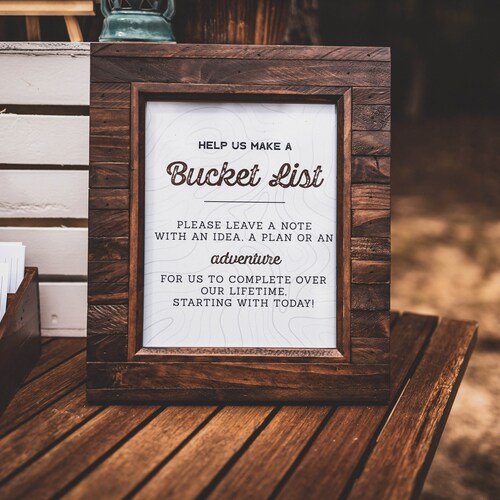 HELP US MAKE A
Bucket List
PLEASE LEAVE A NOTE
WITH AN IDEA, A PLAN OR AN
adventure
FOR US TO COMPLETE OVER
OUR LIFETIME,
STARTING WITH TODAY!